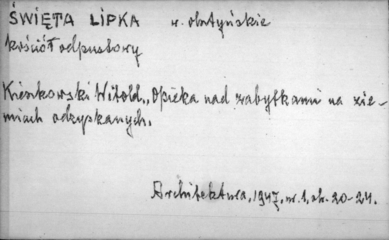 ŚWIĘTA LIPKA w. olsztyńskie
kościół odpustowy
Kieszkowski Witold, Opieka nad zabytkami na zie-
miach odzyskanych.
Architektura, 1947, nr. 1, str. 20-24.